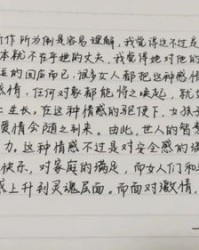 所作所为倒是容易理解,我觉得这不过是
本就不在乎她的丈夫,我觉得她对他的
的回应而已,很多女人都把这种感情
情,任何对象都能将之唤起,就
上生长。在这种情感的驱使下,女孩子
爱情会随之到来。由此,世人的智慧
力。这种情感不过是对安全感的
快乐,对家庭的满足,而女人们和
上升到灵魂层面。而面对激情,